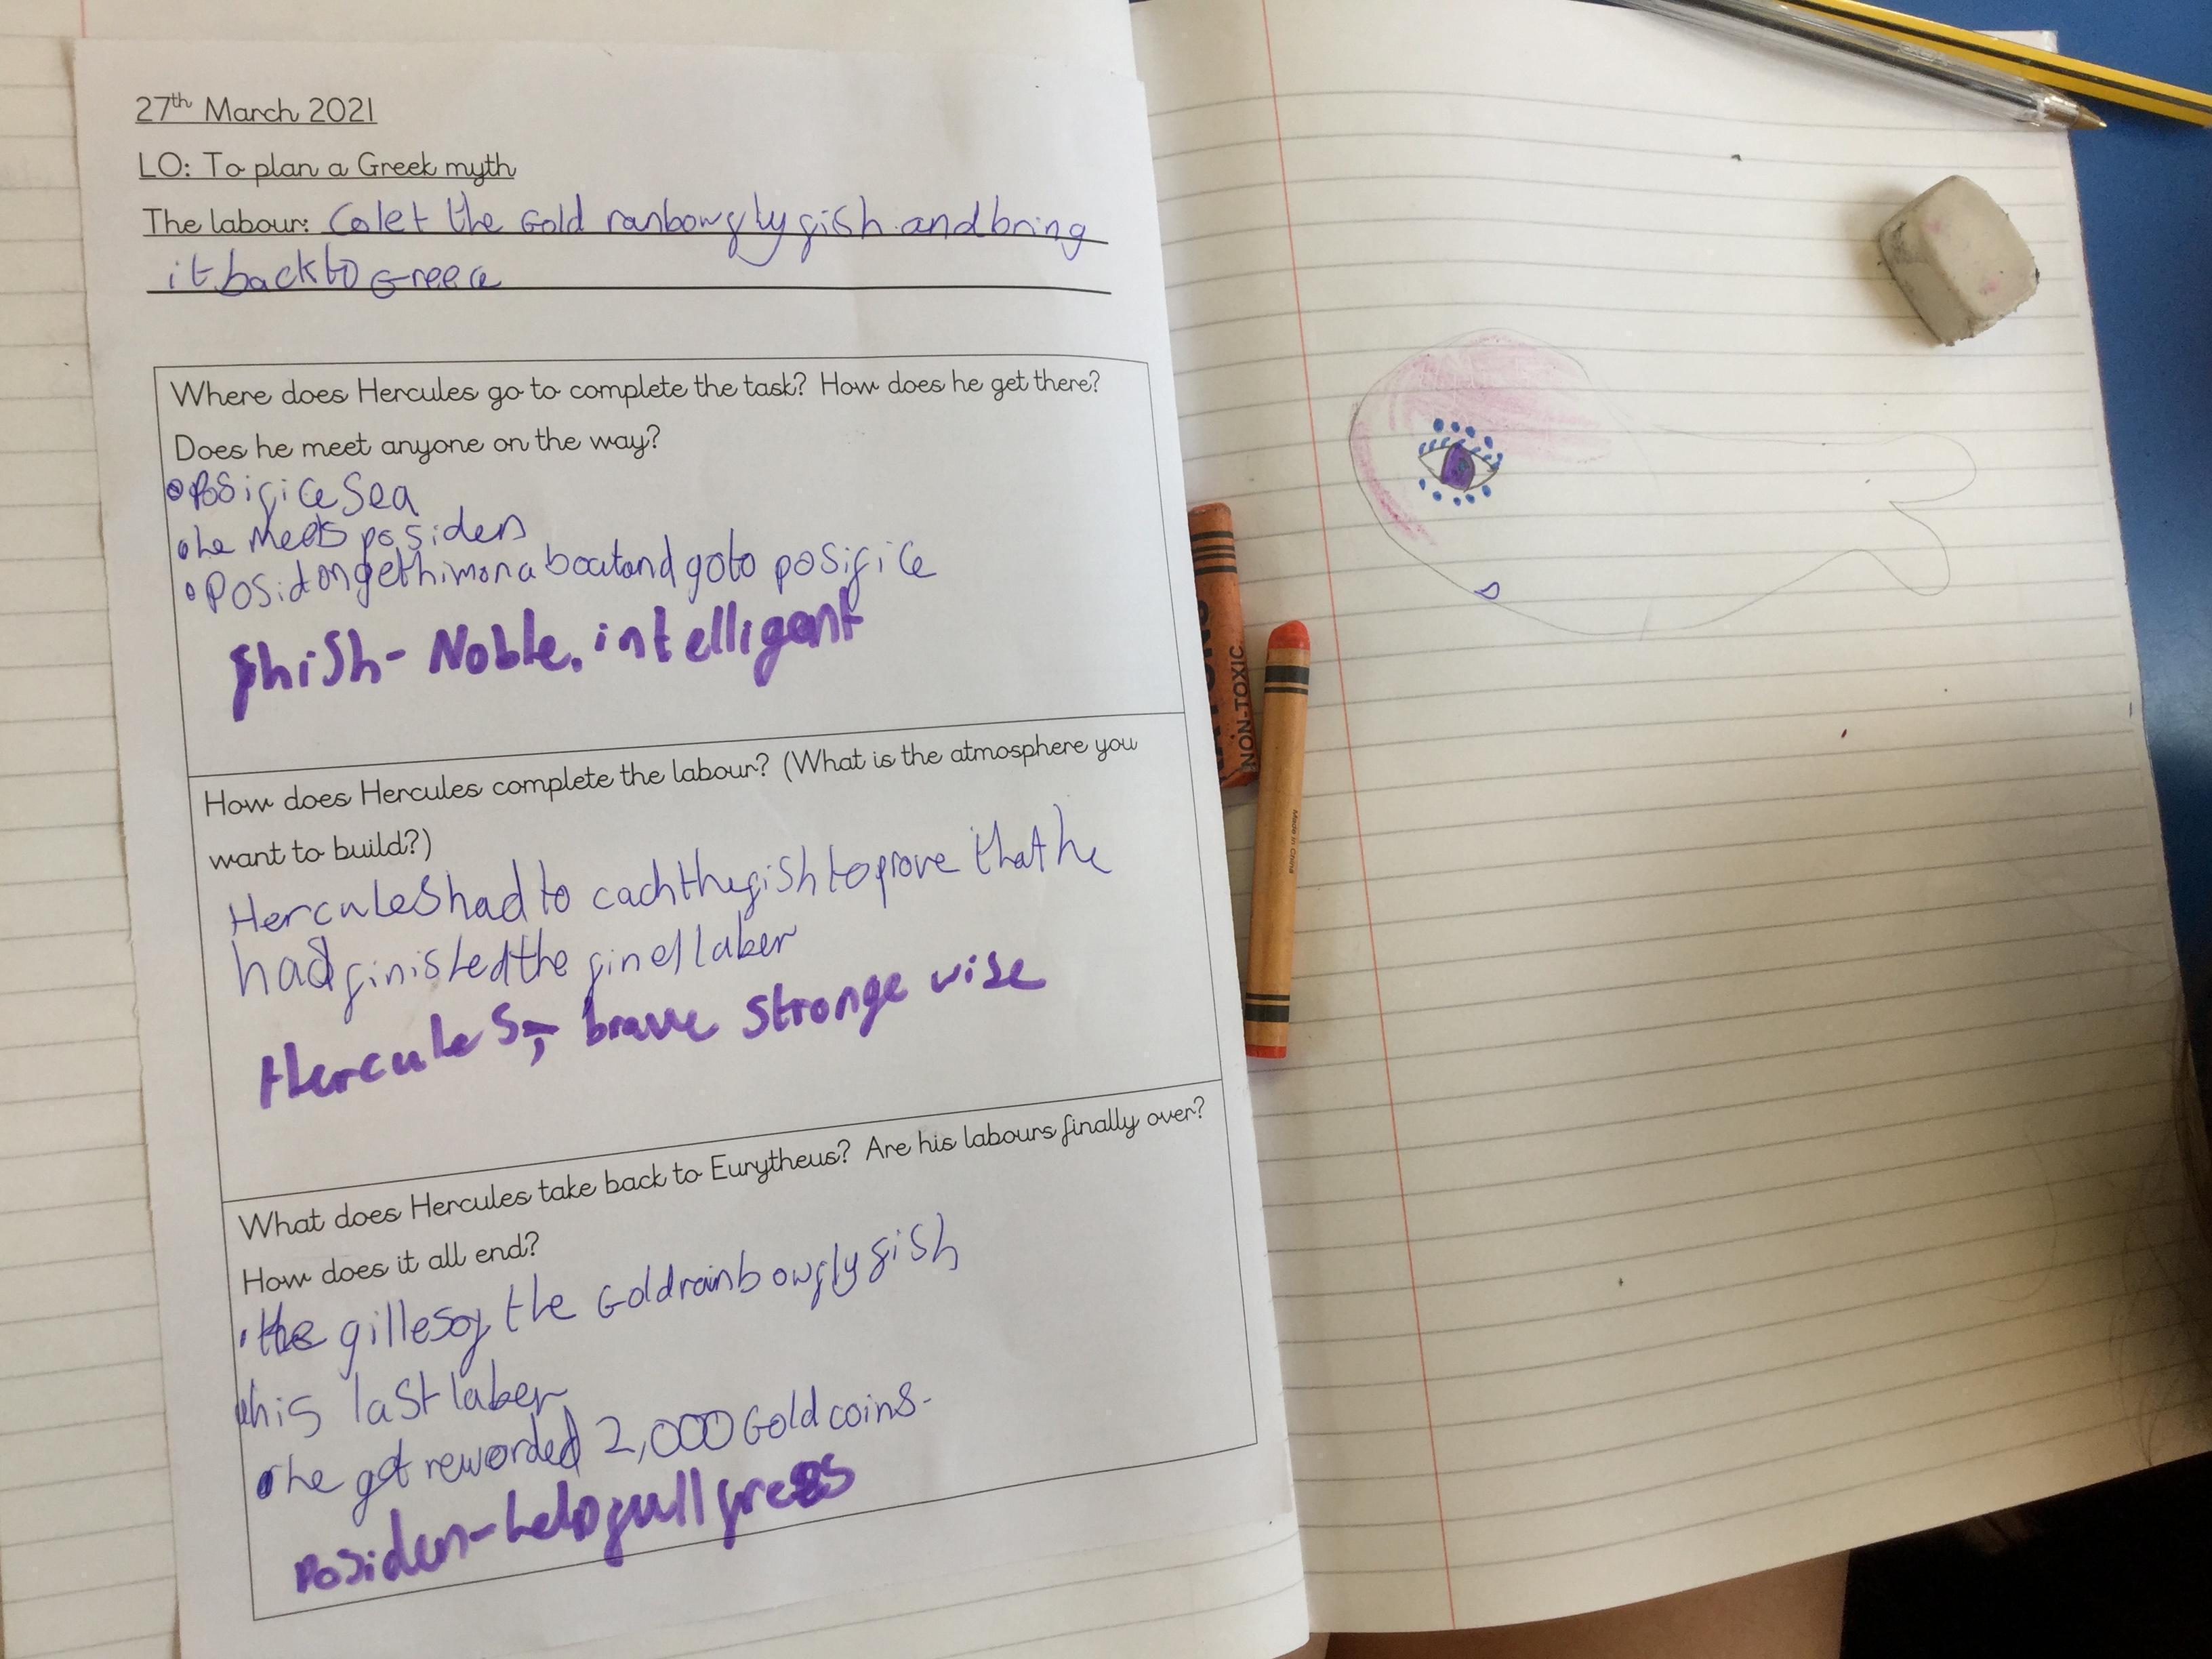 27th March 2021
LO: To plan a Greek myth
The labour: Colet the Gold ranbow fly fish and bring
it back to Greece
Where does Hercules go to complete the task? How does he get there?
Does he meet anyone on the way?
Posifice Sea
he meets posiden
Posidon get him on a boat and go to posifice
fhish- Noble. intelligent
How does Hercules complete the labour? (What is the atmosphere you
want to build?)
Hercules had to cach the fish to prove that he
had finished the finel laber
Hercules, brave stronge wise
What does Hercules take back to Eurytheus? Are his labours finally over?
How does it all end?
the gilles of the Gold rainbow fly fish
his last laber
he got reworded 2,000 Gold coins.
Posiden-helpfull
NON-TOXIC
Made in China